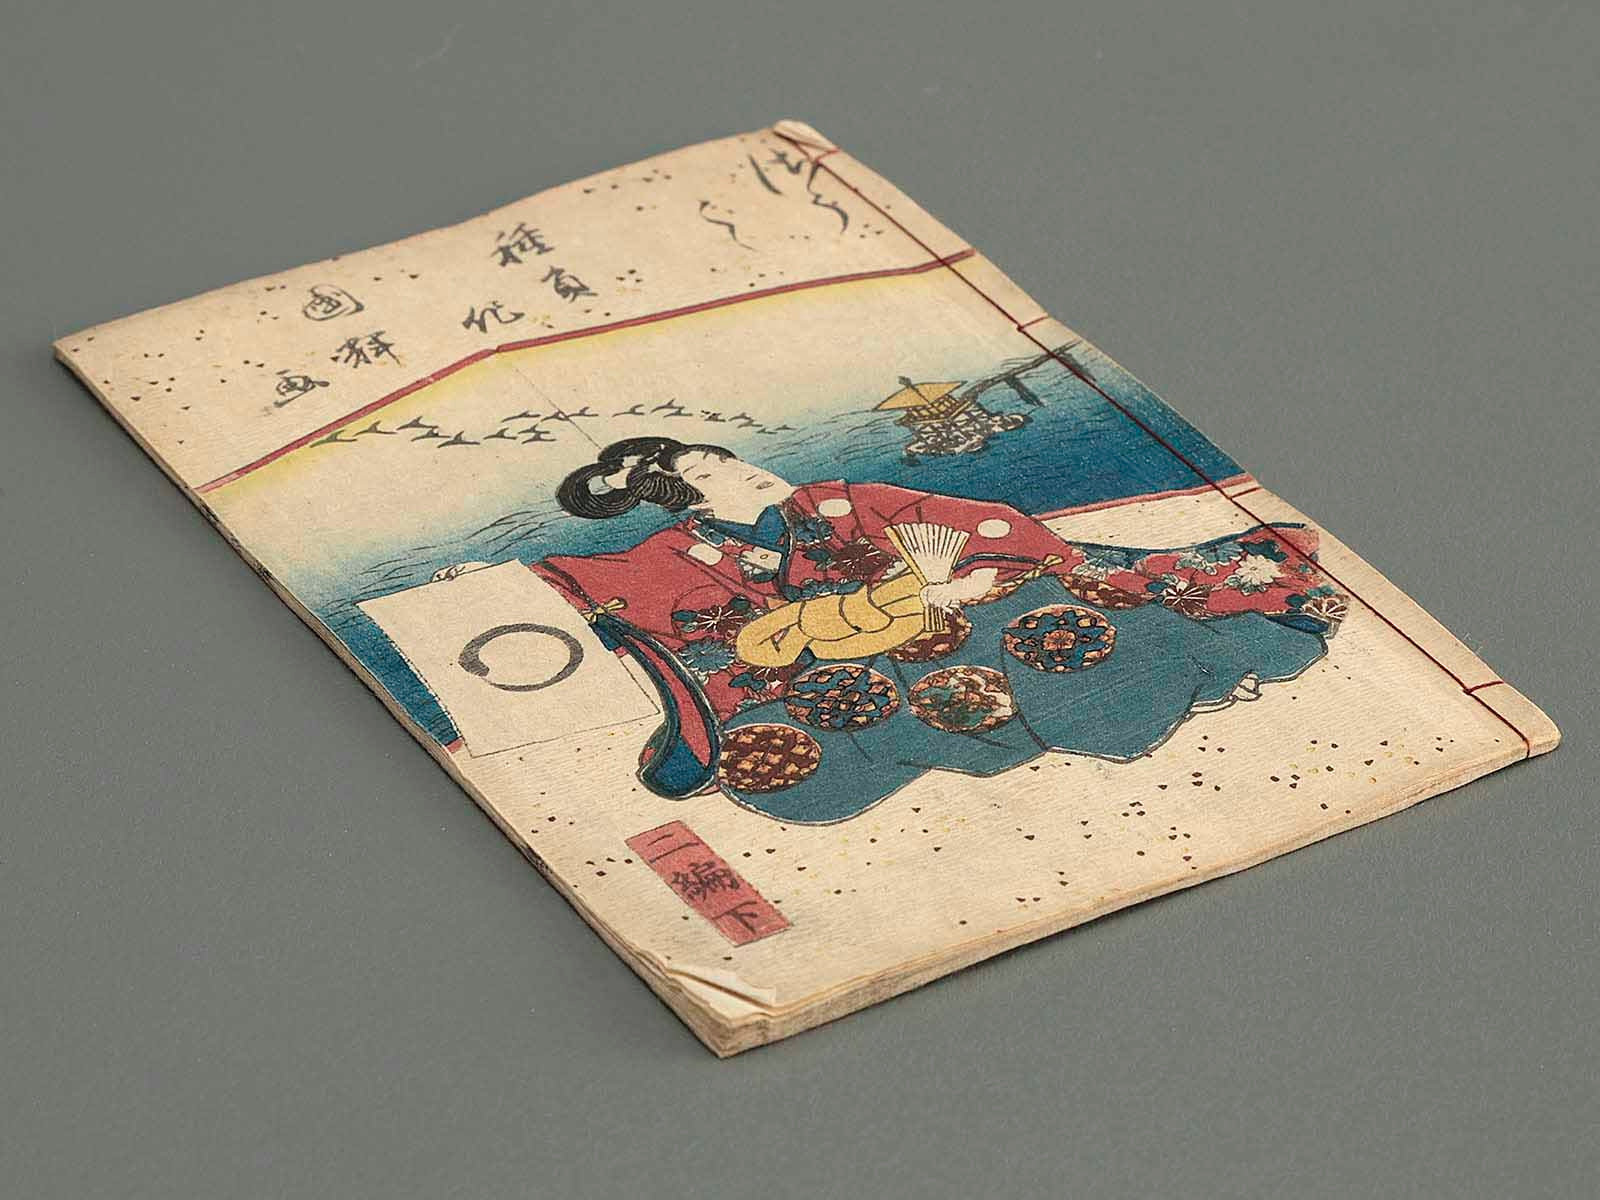 種員作
國輝画
二編下